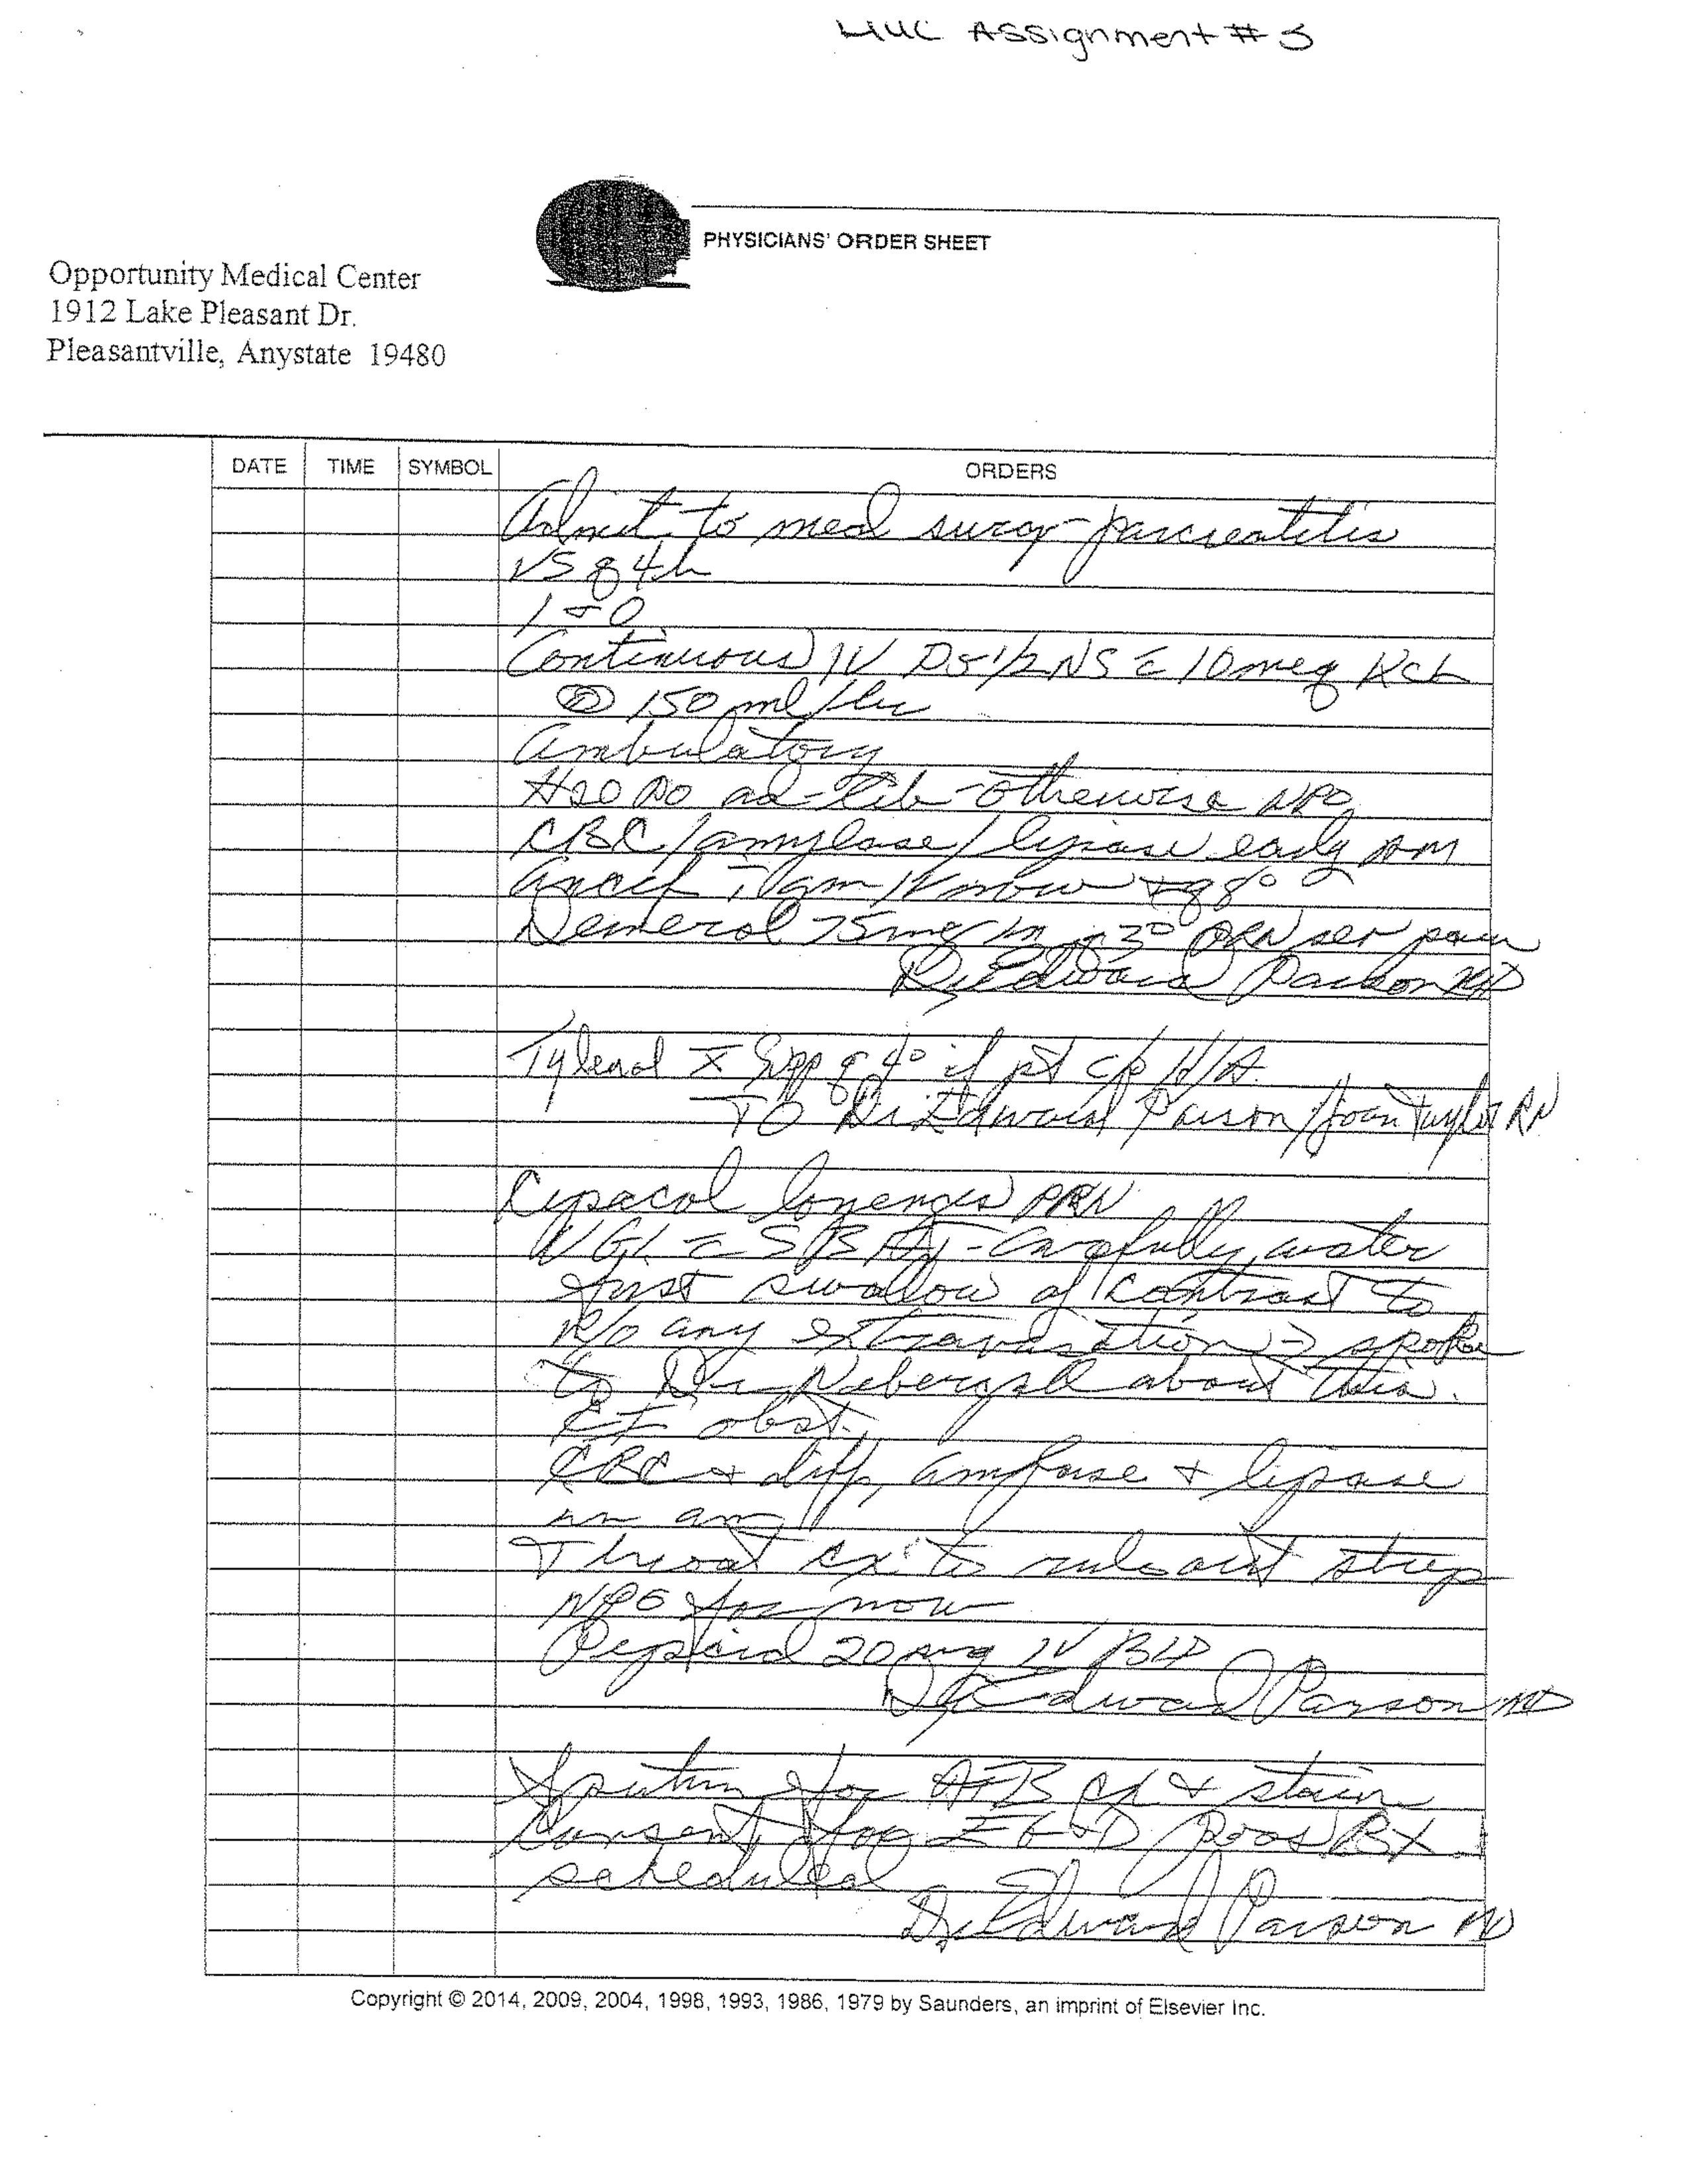 HUC Assignment # 3
PHYSICIANS' ORDER SHEET
Opportunity Medical Center
1912 Lake Pleasant Dr.
Pleasantville, Anystate 19480
DATE TIME SYMBOL ORDERS
Admit to med surg - pancreatitis
VS q 4h
I & O
Continuous IV D5 1/2 NS c̄ 10 meq KCL
@ 150 ml/hr
Ambulatory
H2O PO ad-lib - otherwise NPO
CBC/amylase/lipase early AM
Ancef ī gm IV now + q 8°
Demerol 75 mg IM q 3° PRN per pain
Dr Edward Parson MD
Tylenol Supp q 4° if pt c/o H/A
TO Dr. Edward Parson/Joan Taylor RN
Cepacol lozenges PRN
UGI c̄ SBFT - Carefully, water
first swallow of contrast to
R/O any extravasation → spoke
to Dr Nebergall about this.
obst.
CBC + diff, amylase + lipase
in am
Throat cx to rule out strep
NPO for now
Pepcid 20 mg IV BID
Dr Edward Parson MD
Sputum for AFB cx & stain
Consent for EGD poss BX
scheduled
Dr Edward Parson MD
Copyright © 2014, 2009, 2004, 1998, 1993, 1986, 1979 by Saunders, an imprint of Elsevier Inc.